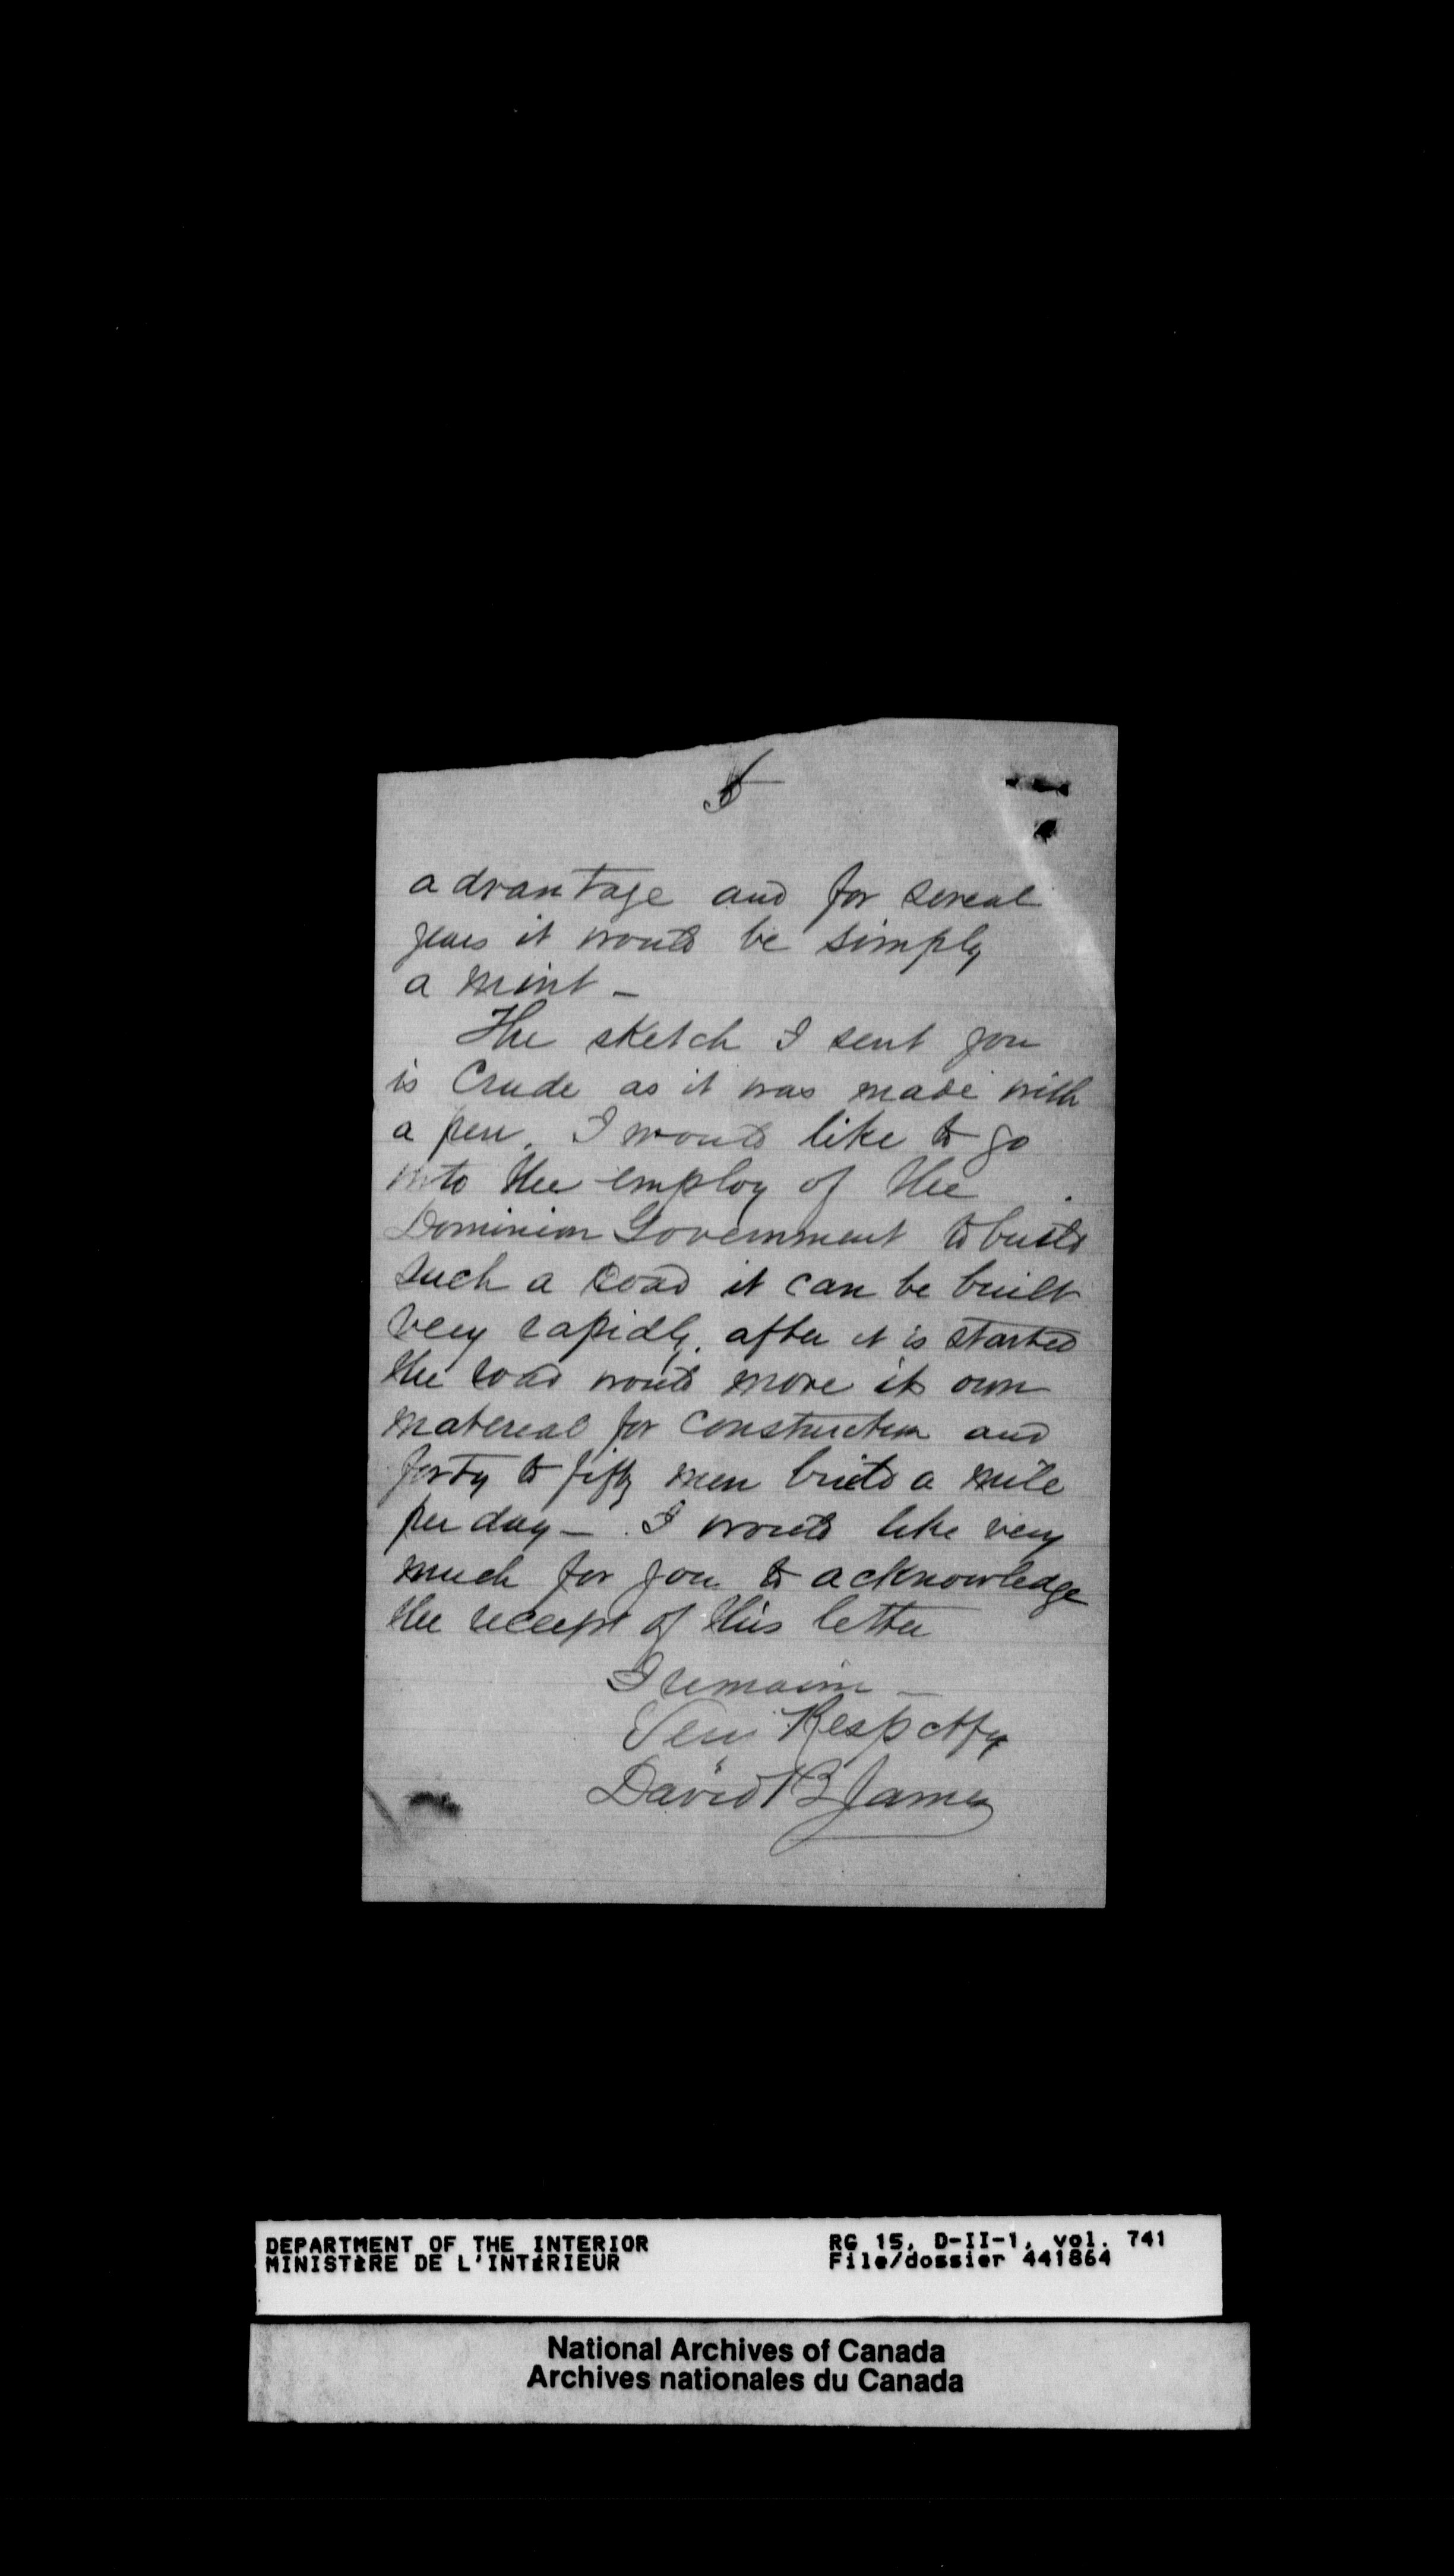 5
advantage and for several
years it would be simply
a mint -
The sketch I sent you
is crude as it was made with
a pen. I would like to go
into the employ of the
Dominion Government to build
such a road it can be built
very rapidly. after it is started
the road would move its own
matereal for construction and
forty to fifty men build a mile
per day - I would like very
much for you to acknowledge
the receept of this letter
I remain -
Very Respctfy
David B James
DEPARTMENT OF THE INTERIOR
MINISTÈRE DE L'INTÉRIEUR
RG 15, D-II-1, vol. 741
File/dossier 441864
National Archives of Canada
Archives nationales du Canada